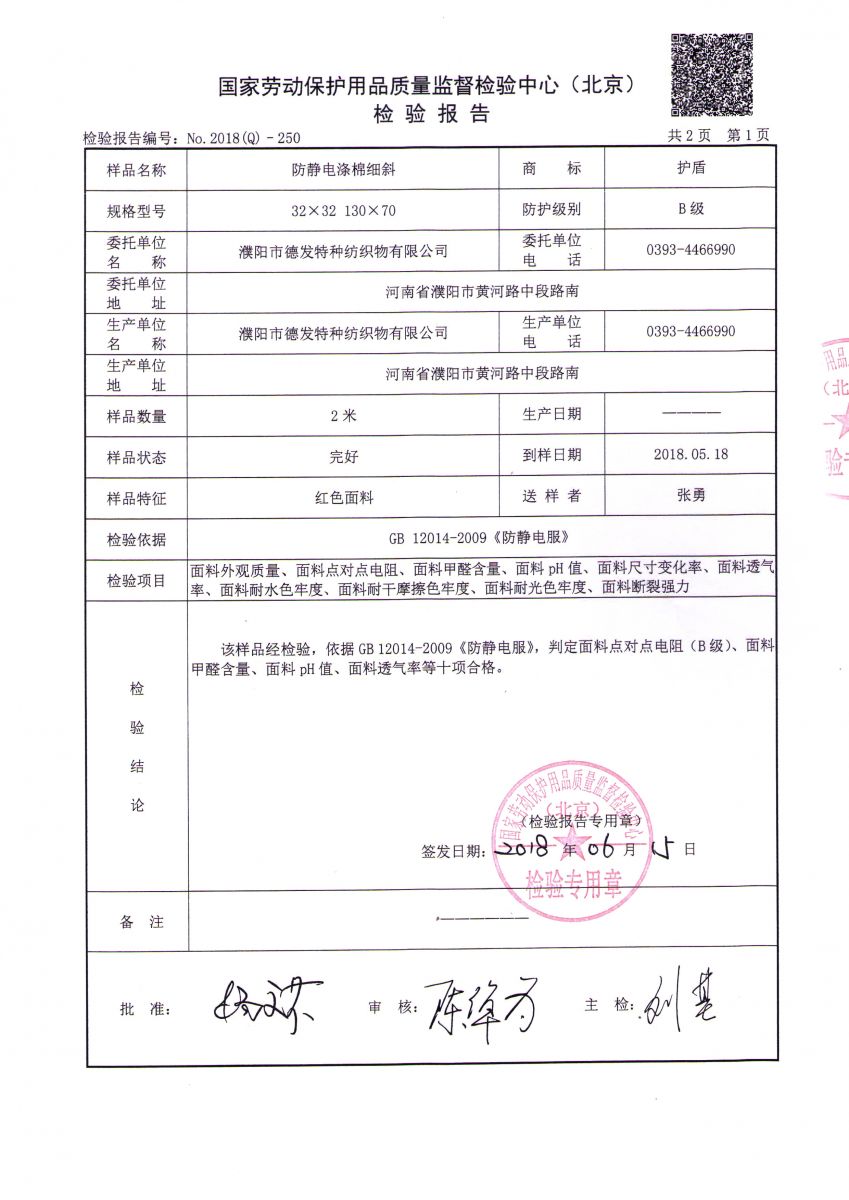 国家劳动保护用品质量监督检验中心（北京）
检 验 报 告
检验报告编号：No.2018(Q)－250
共2页 第1页
样品名称 防静电涤棉细斜 商 标 护盾
规格型号 32×32 130×70 防护级别 B级
委托单位名 称 濮阳市德发特种纺织物有限公司 委托单位电 话 0393-4466990
委托单位地 址 河南省濮阳市黄河路中段路南
生产单位名 称 濮阳市德发特种纺织物有限公司 生产单位电 话 0393-4466990
生产单位地 址 河南省濮阳市黄河路中段路南
样品数量 2米 生产日期 ————
样品状态 完好 到样日期 2018.05.18
样品特征 红色面料 送 样 者 张勇
检验依据 GB 12014-2009《防静电服》
检验项目 面料外观质量、面料点对点电阻、面料甲醛含量、面料pH值、面料尺寸变化率、面料透气
率、面料耐水色牢度、面料耐干摩擦色牢度、面料耐光色牢度、面料断裂强力
检验结论
该样品经检验，依据GB 12014-2009《防静电服》，判定面料点对点电阻（B级）、面料
甲醛含量、面料pH值、面料透气率等十项合格。
国家劳动保护用品质量监督检验中心
（北京）
（检验报告专用章）
签发日期：2018年06月15日
检验专用章
备 注 ——————
批 准： 审 核： 主 检：
用品
（北
验专